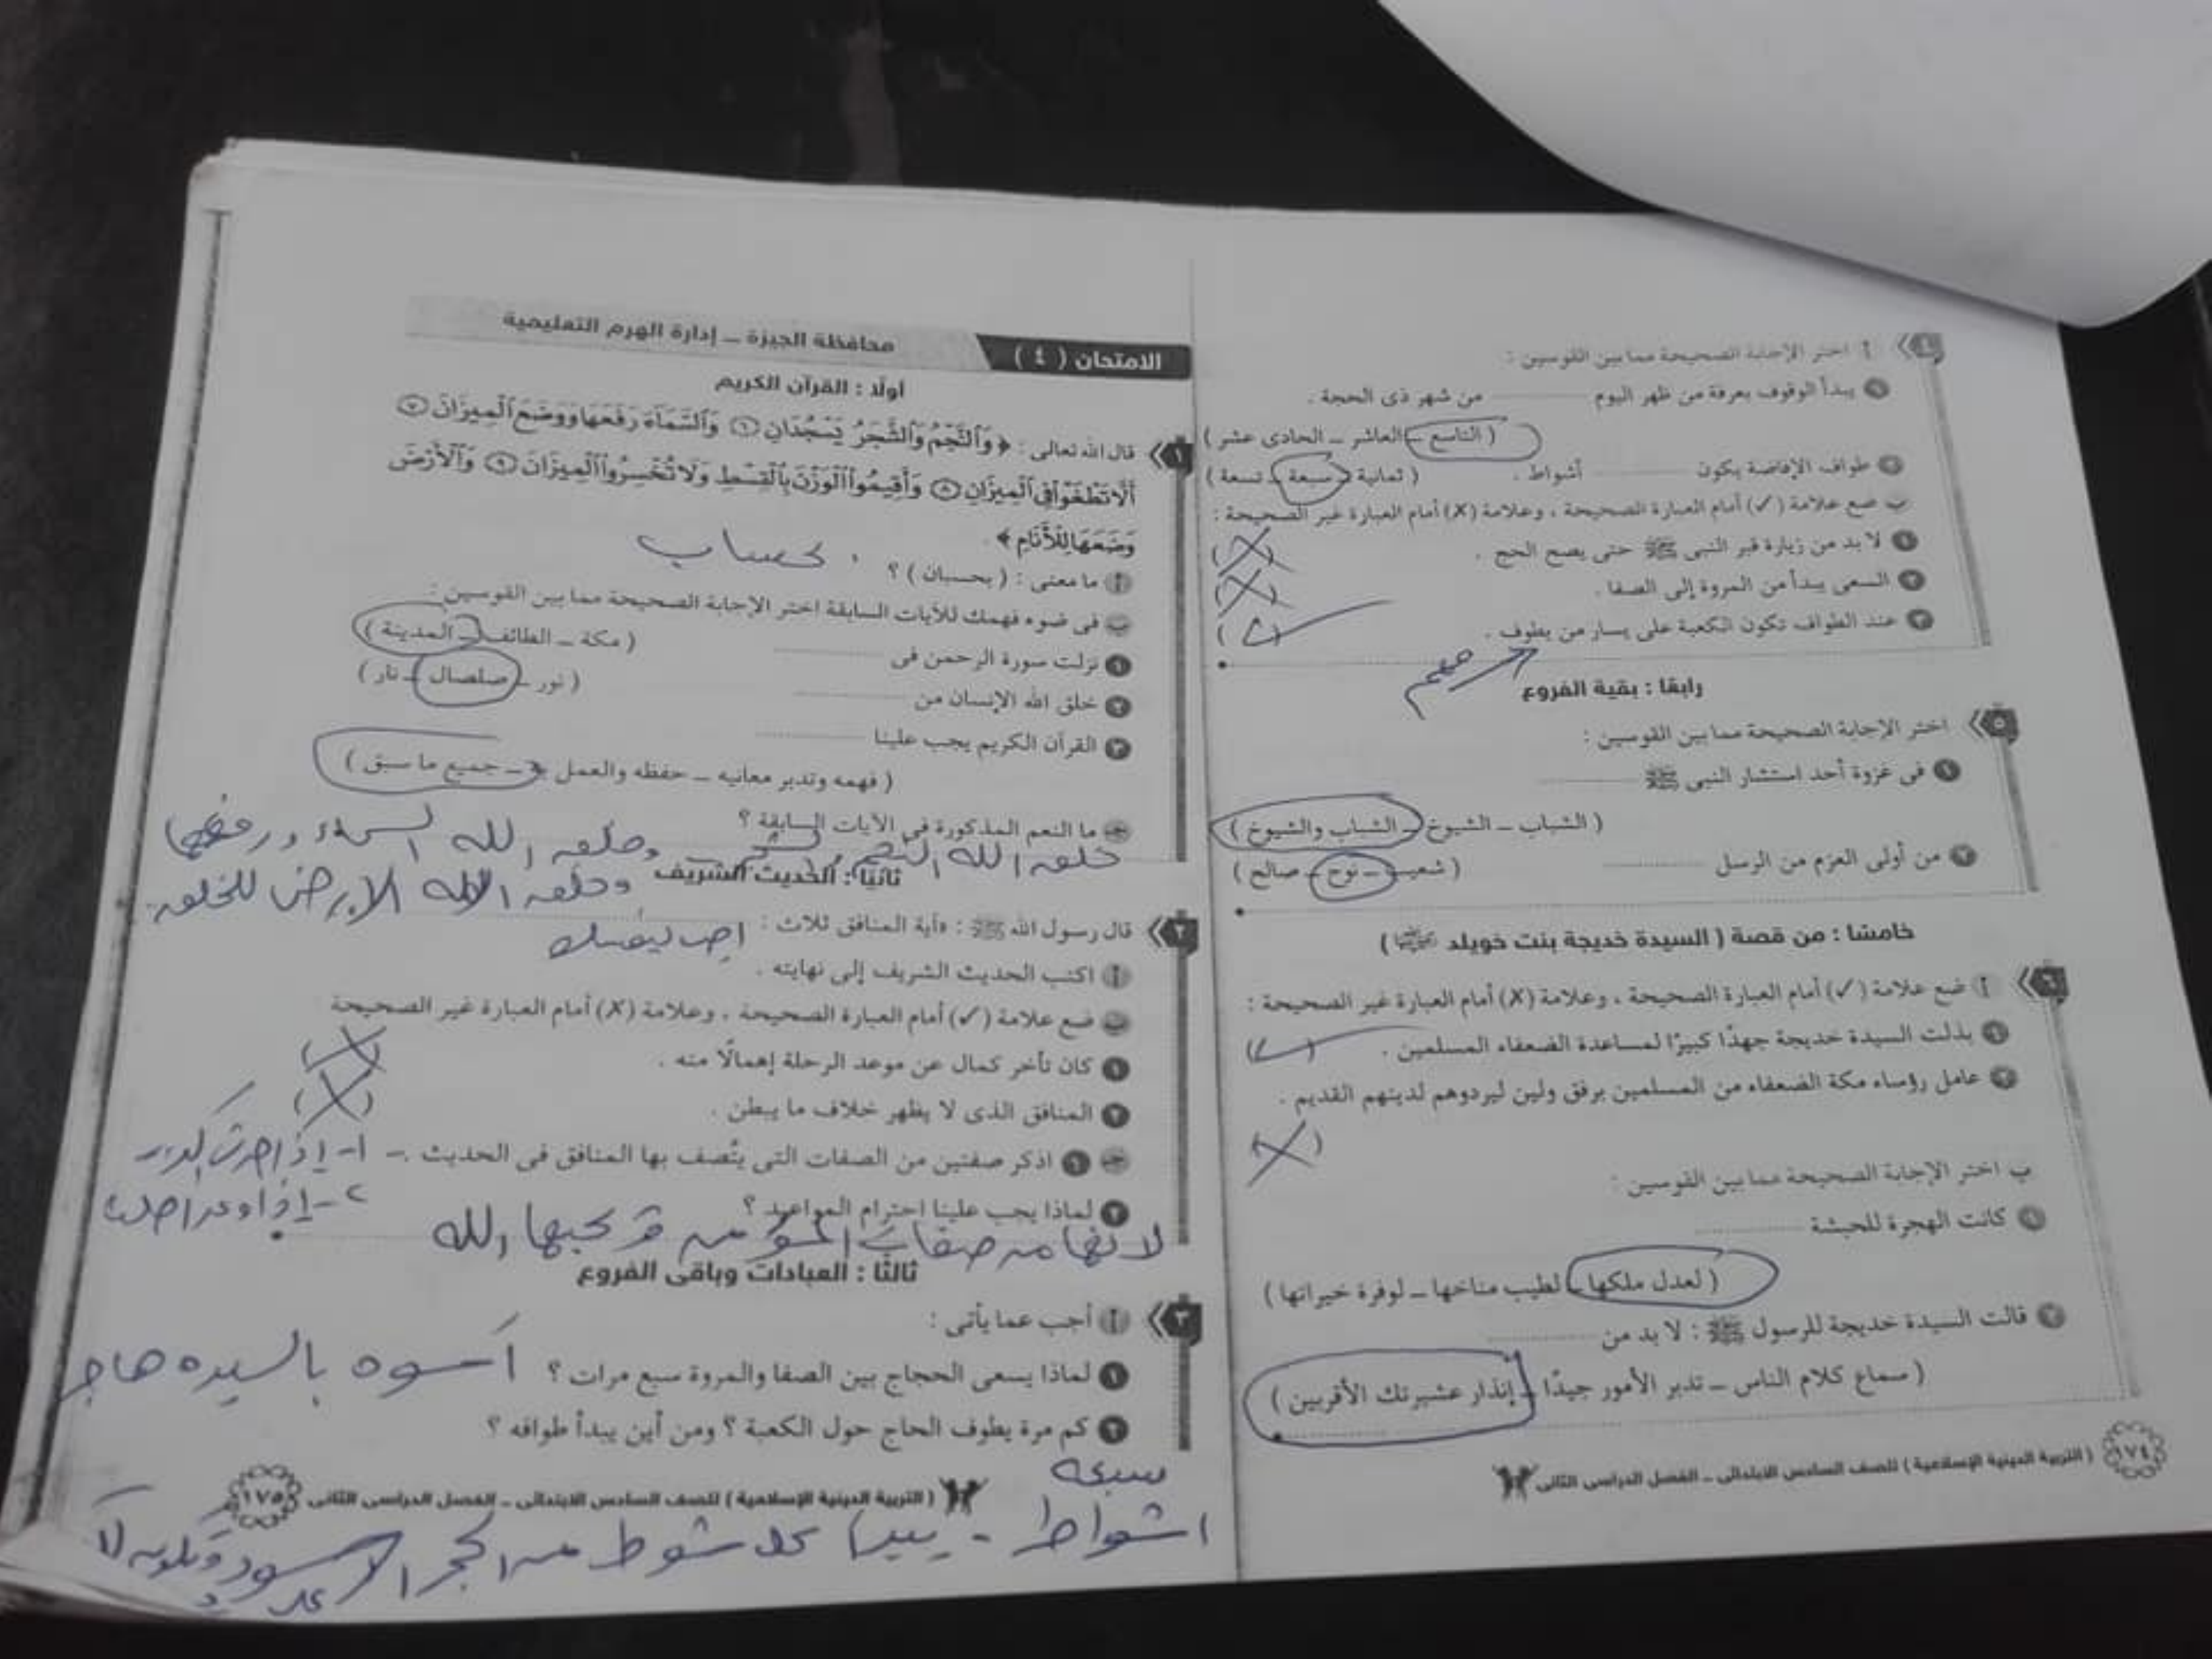 ٤ أ اختر الإجابة الصحيحة مما بين القوسين :
١ يبدأ الوقوف بعرفة من ظهر اليوم .......... من شهر ذى الحجة .
( التاسع – العاشر – الحادى عشر )
٢ طواف الإفاضة يكون .......... أشواط . ( ثمانية – سبعة – تسعة )
ب ضع علامة (✓) أمام العبارة الصحيحة ، وعلامة (✗) أمام العبارة غير الصحيحة :
١ لا بد من زيارة قبر النبى ﷺ حتى يصح الحج . (✗)
٢ السعى يبدأ من المروة إلى الصفا . (✗)
٣ عند الطواف تكون الكعبة على يسار من يطوف . (✓)
مهم
رابعًا : بقية الفروع
٥ اختر الإجابة الصحيحة مما بين القوسين :
١ فى غزوة أحد استشار النبى ﷺ ..........
( الشباب – الشيوخ – الشباب والشيوخ )
٢ من أولى العزم من الرسل .......... ( شعيب – نوح – صالح )
خامسًا : من قصة ( السيدة خديجة بنت خويلد )
٦ أ ضع علامة (✓) أمام العبارة الصحيحة ، وعلامة (✗) أمام العبارة غير الصحيحة :
١ بذلت السيدة خديجة جهدًا كبيرًا لمساعدة الضعفاء المسلمين . (✓)
٢ عامل رؤساء مكة الضعفاء من المسلمين برفق ولين ليردوهم لدينهم القديم .
(✗)
ب اختر الإجابة الصحيحة مما بين القوسين :
١ كانت الهجرة للحبشة ..........
( لعدل ملكها – لطيب مناخها – لوفرة خيراتها )
٢ قالت السيدة خديجة للرسول ﷺ : لا بد من ..........
( سماع كلام الناس – تدبر الأمور جيدًا – إنذار عشيرتك الأقربين )
١٧٤ ( التربية الدينية الإسلامية ) للصف السادس الابتدائى – الفصل الدراسى الثانى
الامتحان ( ٤ ) محافظة الجيزة – إدارة الهرم التعليمية
أولًا : القرآن الكريم
١ قال الله تعالى : ﴿ وَٱلنَّجْمُ وَٱلشَّجَرُ يَسْجُدَانِ ٦ وَٱلسَّمَآءَ رَفَعَهَا وَوَضَعَ ٱلْمِيزَانَ ٧
أَلَّا تَطْغَوْا۟ فِى ٱلْمِيزَانِ ٨ وَأَقِيمُوا۟ ٱلْوَزْنَ بِٱلْقِسْطِ وَلَا تُخْسِرُوا۟ ٱلْمِيزَانَ ٩ وَٱلْأَرْضَ
وَضَعَهَا لِلْأَنَامِ ﴾ .
أ ما معنى : ( بحسبان ) ؟ بحساب
ب فى ضوء فهمك للآيات السابقة اختر الإجابة الصحيحة مما بين القوسين :
١ نزلت سورة الرحمن فى .......... ( مكة – الطائف – المدينة )
٢ خلق الله الإنسان من .......... ( نور – صلصال – نار )
٣ القرآن الكريم يجب علينا ..........
( فهمه وتدبر معانيه – حفظه والعمل به – جميع ما سبق )
ج ما النعم المذكورة فى الآيات السابقة ؟
خلق الله النجم وخلق الله السماء ورفعها
وخلق الله الارض للخلق
ثانيًا : الحديث الشريف
٢ قال رسول الله ﷺ : «آية المنافق ثلاث : اجب بنفسك
أ اكتب الحديث الشريف إلى نهايته .
ب ضع علامة (✓) أمام العبارة الصحيحة ، وعلامة (✗) أمام العبارة غير الصحيحة
١ كان تأخر كمال عن موعد الرحلة إهمالًا منه . (✗)
٢ المنافق الذى لا يظهر خلاف ما يبطن . (✗)
ج ١ اذكر صفتين من الصفات التى يتَّصف بها المنافق فى الحديث . ١- إذا حدث كذب
٢- إذا وعد اخلف
٢ لماذا يجب علينا احترام المواعيد ؟
لانها من صفات المؤمن يحبها الله
ثالثًا : العبادات وباقى الفروع
٣ أ أجب عما يأتى :
١ لماذا يسعى الحجاج بين الصفا والمروة سبع مرات ؟ أسوه بالسيده هاجر
٢ كم مرة يطوف الحاج حول الكعبة ؟ ومن أين يبدأ طوافه ؟
سبعه
اشواط - يبدا كل شوط من الحجر الاسود
( التربية الدينية الإسلامية ) للصف السادس الابتدائى – الفصل الدراسى الثانى ١٧٥